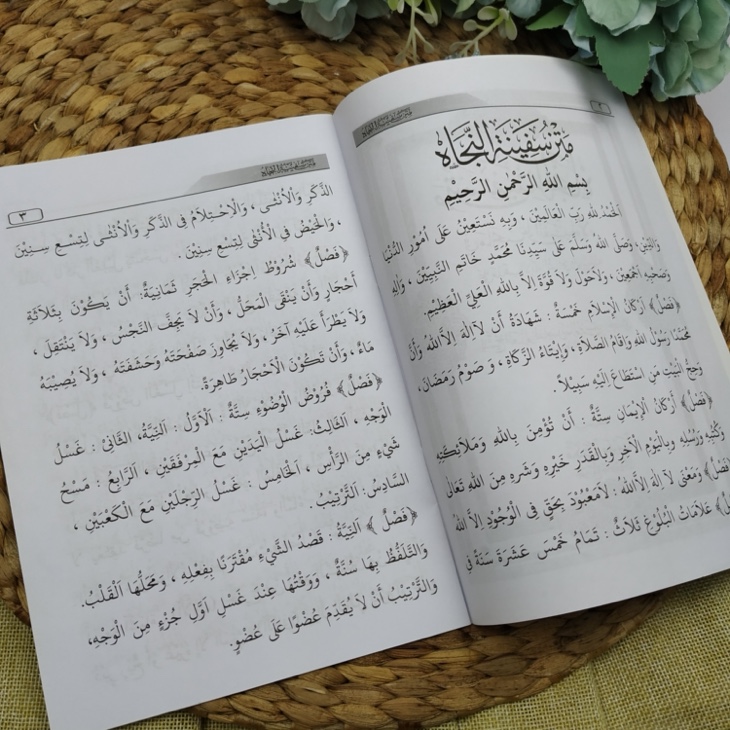 ٢
متن سفينة النجاة
مَتْنُ سَفِيْنَةِ النَّجَاهْ
بِسْمِ اللهِ الرَّحْمٰنِ الرَّحِيْمِ
اَلْحَمْدُ لِلهِ رَبِّ الْعَالَمِيْنَ ، وَبِهِ نَسْتَعِيْنُ عَلَى أُمُوْرِ الدُّنْيَا
وَالدِّيْنِ، وَصَلَّى اللهُ وَسَلَّمَ عَلَى سَيِّدِنَا مُحَمَّدٍ خَاتَمِ النَّبِيِّيْنَ ، وَاٰلِهِ
وَصَحْبِهِ اَجْمَعِيْنَ ، وَلَاحَوْلَ وَلَا قُوَّةَ اِلَّا بِاللهِ الْعَلِيِّ الْعَظِيْمِ.
﴿فَصْلٌ﴾ اَرْكَانُ الْإِسْلَامِ خَمْسَةٌ : شَهَادَةُ أَنْ لَااِلٰهَ اِلَّااللهُ وَأَنَّ
مُحَمَّدًا رَسُوْلُ اللهِ وَاِقَامُ الصَّلَاةِ ، وَاِيْتَاءُ الزَّكَاةِ ، وَ صَوْمُ رَمَضَانَ ،
وَحِجُّ الْبَيْتِ مَنِ اسْتَطَاعَ اِلَيْهِ سَبِيْلًا.
﴿فَصْلٌ﴾ اَرْكَانُ الْإِيْمَانِ سِتَّةٌ : أَنْ تُؤْمِنَ بِاللهِ وَمَلَائِكَتِهِ
وَكُتُبِهِ وَرُسُلِهِ وَبِالْيَوْمِ الْاٰخِرِ وَبِالْقَدَرِ خَيْرِهِ وَشَرِّهِ مِنَ اللهِ تَعَالَى
﴿فَصْلٌ﴾ وَمَعْنَى لَا اِلٰهَ اِلَّااللهُ : لَامَعْبُوْدَ بِحَقٍّ فِى الْوُجُوْدِ اِلَّا اللهُ
عَلَامَاتُ الْبُلُوْغِ ثَلَاثٌ : تَمَامُ خَمْسَ عَشَرَةَ سَنَةً فِى
متن سفينة النجاة
٣
الذَّكَرِ وَالْأُنْثَى ، وَالْاِحْتِلَامُ فِى الذَّكَرِ وَالْأُنْثَى لِتِسْعِ سِنِيْنَ
، وَالْحَيْضُ فِى الْأُنْثَى لِتِسْعِ سِنِيْنَ .
﴿فَصْلٌ﴾ شُرُوْطُ اِجْزَاءِ الْحَجَرِ ثَمَانِيَةٌ: أَنْ يَكُوْنَ بِثَلَاثَةِ
أَحْجَارٍ وَأَنْ يَنْقَى الْمَحَلُّ ، وَأَنْ لَا يَجِفَّ النَّجْسُ ، وَلَا يَنْتَقِلَ ،
وَلَا يَطْرَأَ عَلَيْهِ اٰخَرُ ، وَلَا يُجَاوِزَ صَفْحَتَهُ وَحَشَفَتَهُ ، وَلَا يُصِيْبَهُ
مَاءٌ ، وَأَنْ تَكُوْنَ الْأَحْجَارُ طَاهِرَةً.
﴿فَصْلٌ﴾ فُرُوْضُ الْوُضُوْءِ سِتَّةٌ : اَلْأَوَّلُ : اَلنِّيَّةُ، الثَّانِىْ : غَسْلُ
الْوَجْهِ ، اَلثَّالِثُ: غَسْلُ الْيَدَيْنِ مَعَ الْمِرْفَقَيْنِ ، اَلرَّابِعُ : مَسْحُ
شَيْءٍ مِنَ الرَّأْسِ ، اَلْخَامِسُ : غَسْلُ الرِّجْلَيْنِ مَعَ الْكَعْبَيْنِ ،
السَّادِسُ: اَلتَّرْتِيْبُ.
﴿فَصْلٌ ﴾ اَلنِّيَّةُ : قَصْدُ الشَّيْءِ مُقْتَرَنًا بِفِعْلِهِ ، وَمَحَلُّهَا اَلْقَلْبُ.
وَالتَّلَفُّظُ بِهَا سُنَّةٌ ، وَوَقْتُهَا عِنْدَ غَسْلِ اَوَّلِ جُزْءٍ مِنَ الْوَجْهِ،
وَالتَّرْتِيْبُ أَنْ لَا يُقَدِّمَ عُضْوًا عَلَى عُضْوٍ.